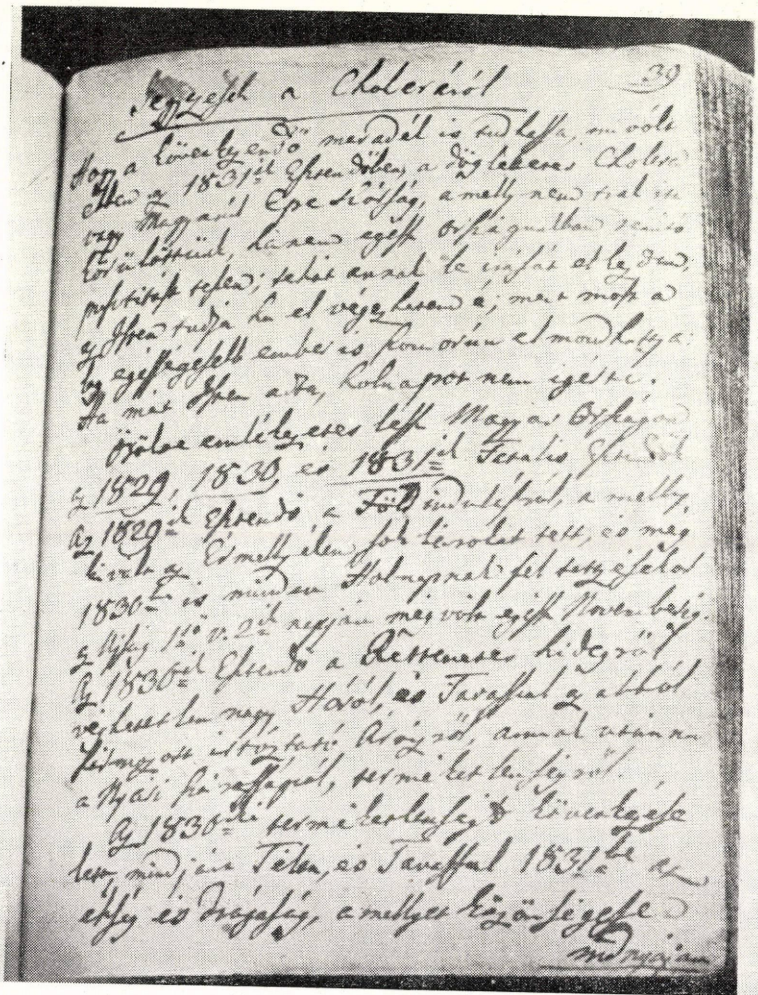 39
Jegyzések a Choleráról
Hogy a következendő maradék is tudhassa, mi vólt
ebben az 1831ik Esztendőben, a dögleletes Cholera
vagy Magyarúl Epe Sárság, a melly nem tsak itt
körülöttünk, hanem egész Országunkban
pusztitást teszen; tehát annak le irását el kezdem,
az Isten tudja ha el végezhetem é; mert most a
leg egésségesebb ember is, szomorúan el mondhattya:
Ha mát Isten adta, holnapot nem igérte.
Örökre emlékezetes lesz Magyar Országon
az 1829, 1830, és 1831ik Fatalis Esztendők
Az 1829ik Esztendő a Föld indulásról, a melly,
kivált az Érmellyékén sok károkat tett, és még
1830be is minden Holnapnak fel tetzésekor
az Ujság 1ső v. 2ik napján meg vólt egész Novemberig.
Az 1830ik Esztendő a Rettenetes hidegről
véghetetlen nagy Hóról, és Tavasszal az abból
származott irtóztató Árvízről, annak utánna
a Nyári szárasságról, terméketlenségről.
Az 1830iki terméketlenség következése
lett, mindjárt Télen, és Tavasszal 1831be az
éhség és drágaság, a mellyet közönségesen
mindnyájan